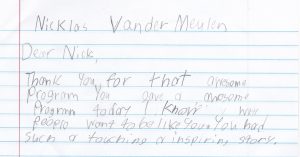 Nicklas VanderMeulen
Dear Nick,
Thank You for that awesome
Program You gave a awesome
Program today I know
people want to be like You. You had
such a touching a inspiring story.